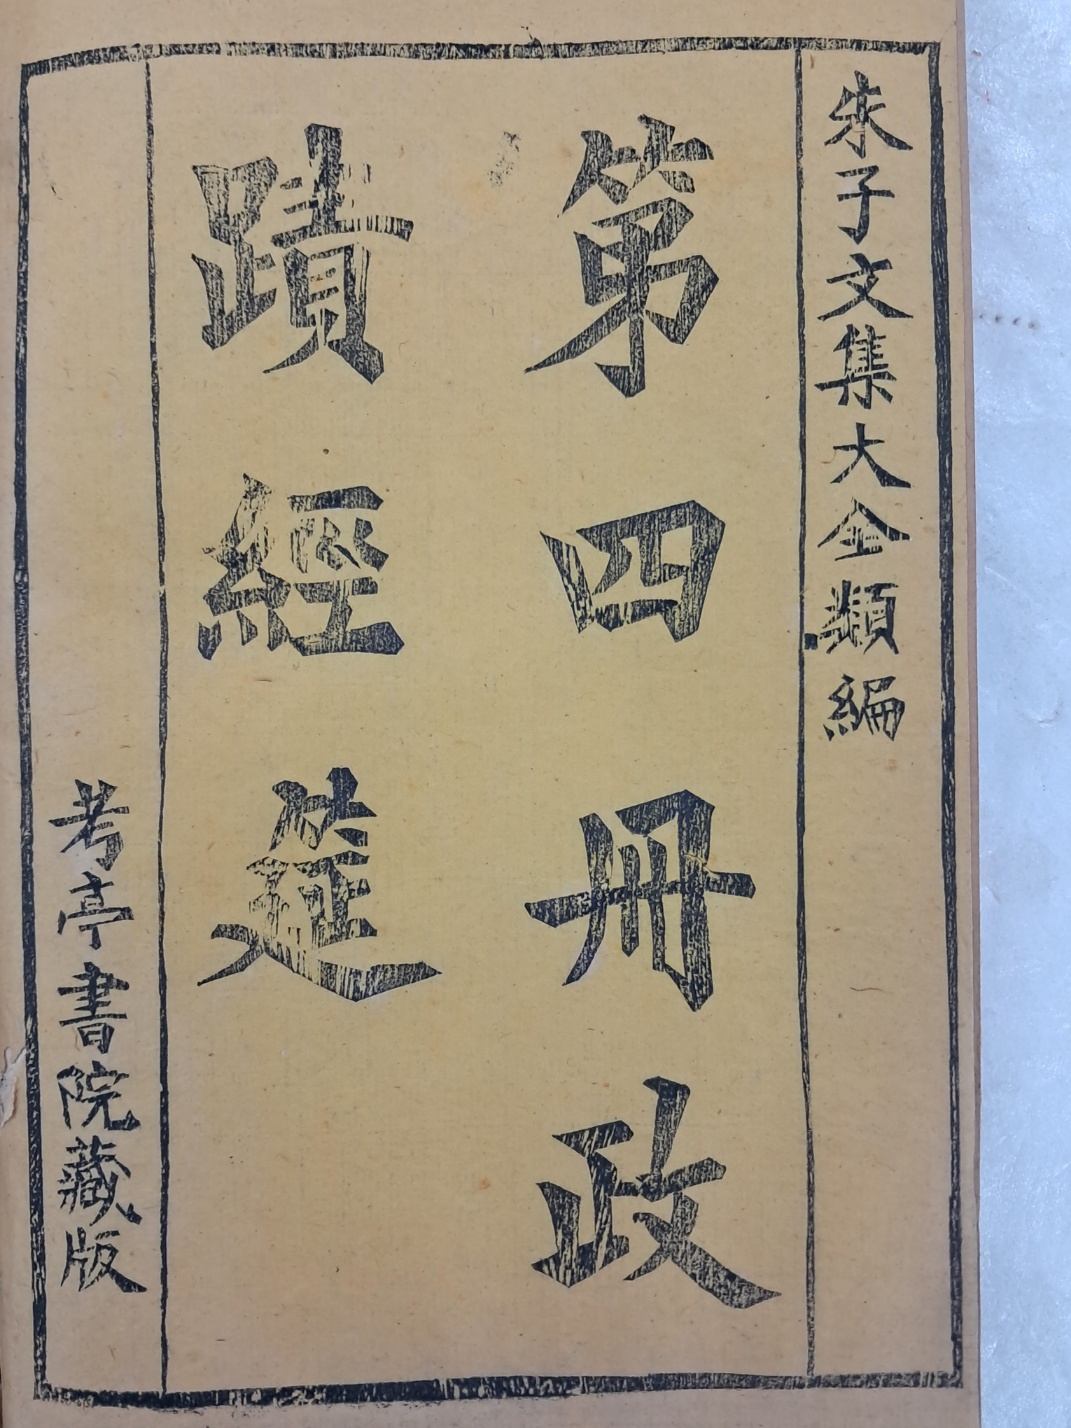 朱子文集大全類編
第四冊政
蹟經筵
考亭書院藏版